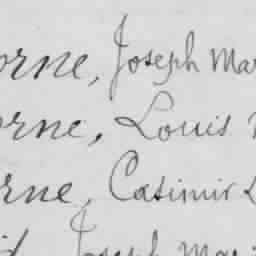 orne, Joseph Mar
orne, Louis
rne, Casimir L
d Joseph Mari